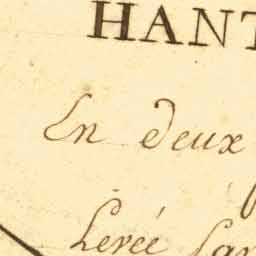 HANT
En deux
Levée